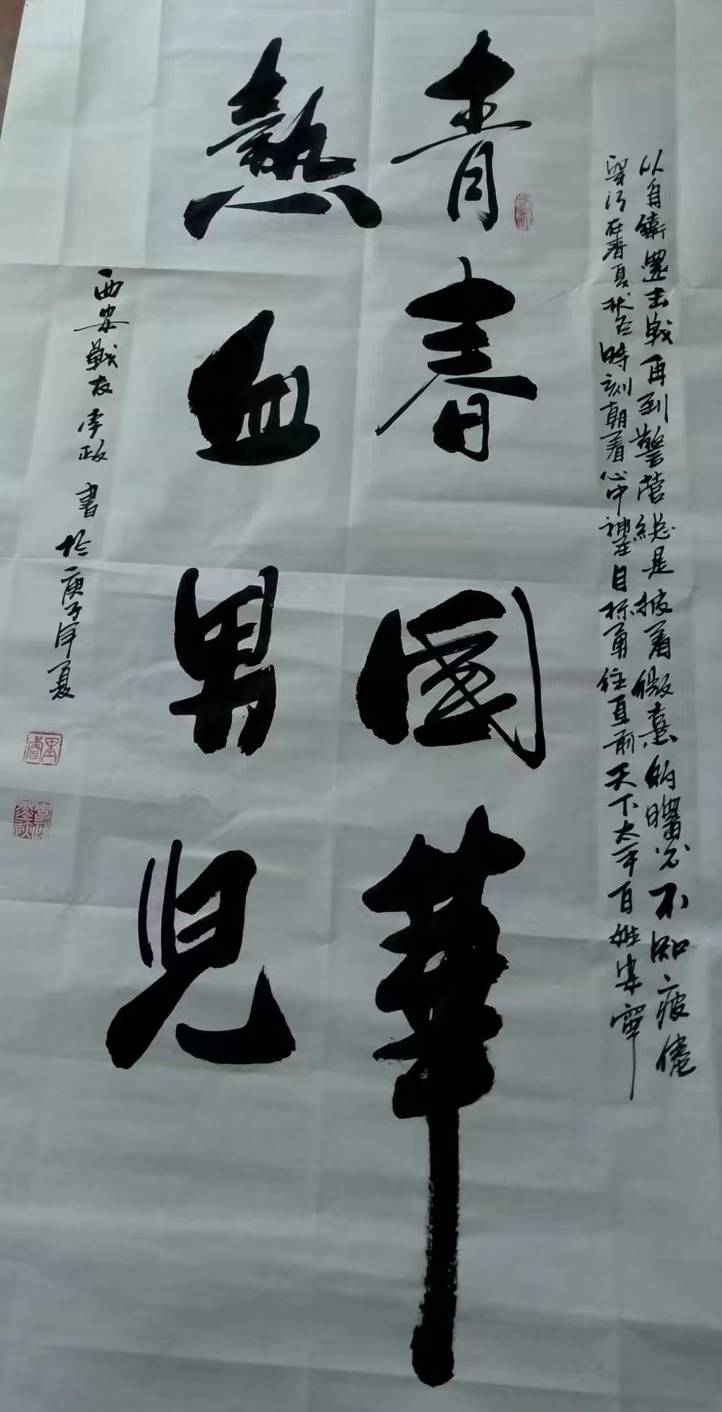 以自衛還击战再到警营总是披着微熹的曙光不知疲倦
穿行在春夏秋冬時刻朝着心中神圣目标勇往直前天下太平百姓安寧
青春國華
熱血男兒
西安戰友李政書於庚子年夏